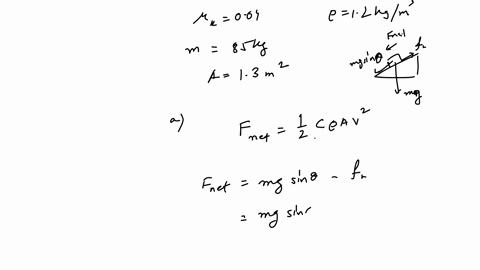 μk = 0.04 ρ = 1.2 kg/m³
m = 85 kg
A = 1.3 m²
Fnet
fk
mg sinθ
mg
a) Fnet = 1/2 C ρ A v²
Fnet = mg sinθ - fk
= mg sin